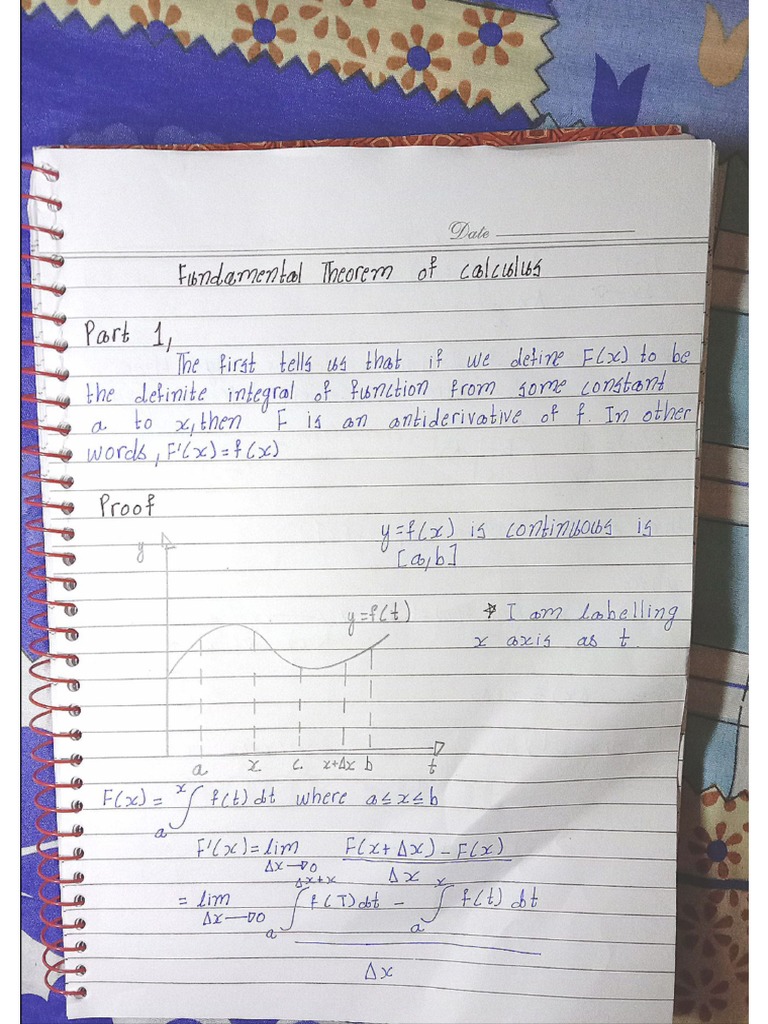 Date
Fundamental Theorem of Calculus
Part 1,
The first tells us that if we define F(x) to be
the definite integral of function from some constant
a to x, then F is an antiderivative of f. In other
words, F'(x) = f(x)
Proof
y = f(x) is continuous is
[a,b]
y
y = f(t)
* I am labelling
x axis as t.
a x c x+Δx b t
F(x) = ₐ∫ˣ f(t) dt where a ≤ x ≤ b
F'(x) = lim Δx→0 F(x + Δx) - F(x) / Δx
= lim Δx→0 ₐ∫^Δx+x f(T) dt - ₐ∫ˣ f(t) dt
Δx